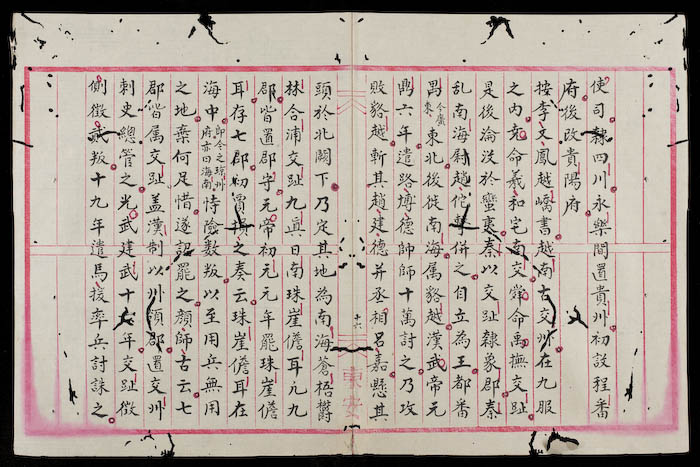 使司隸四川永樂間置貴州初設程番
府後改貴陽府
按李文鳳越嶠書越南古交州在九服
之内堯命羲和宅南交舜命禹撫交趾
是後淪没於蠻裏秦以交趾隸象郡秦
亂南海尉趙佗擊併之自立為王都番
禺今廣東東北後徙南海属貉越漢武帝元
鼎六年遣路博德師師十萬討之乃攻
敗貉越斬其趙建德并丞相名嘉懸其
十六
頭於北闕下乃定其地為南海蒼梧欝
林合浦交趾九真日南珠崖儋耳凡九
郡皆置郡守元帝初元元年罷珠崖儋
耳存七郡初賈捐之奏云珠崖儋耳在
海中即今之琼州府亦曰海南恃險數叛以至用兵無用
之地棄何足惜遂詔罷之顔師古云七
郡皆属交趾盖漢制以州領郡置交州
刺史總管之光武建武十六年交趾徵
側徵貳叛十九年遣馬援率兵討誅之